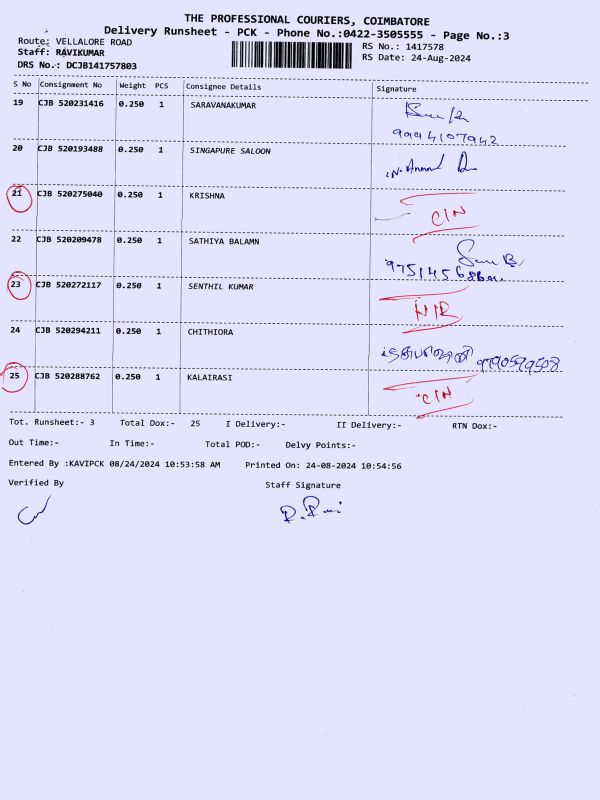 THE PROFESSIONAL COURIERS, COIMBATORE
Delivery Runsheet - PCK - Phone No.:0422-3505555 - Page No.:3
Route: VELLALORE ROAD RS No.: 1417578
Staff: RAVIKUMAR RS Date: 24-Aug-2024
DRS No.: DCJB141757803
S No Consignment No Weight PCS Consignee Details Signature
19 CJB 520231416 0.250 1 SARAVANAKUMAR
9994107942
20 CJB 520193488 0.250 1 SINGAPURE SALOON N. Anand
21 CJB 520275040 0.250 1 KRISHNA CIN
22 CJB 520209478 0.250 1 SATHIYA BALAMN
23 CJB 520272117 0.250 1 SENTHIL KUMAR
24 CJB 520294211 0.250 1 CHITHIORA
25 CJB 520288762 0.250 1 KALAIRASI CIN
Tot. Runsheet:- 3 Total Dox:- 25 I Delivery:- II Delivery:- RTN Dox:-
Out Time:- In Time:- Total POD:- Delvy Points:-
Entered By :KAVIPCK 08/24/2024 10:53:58 AM Printed On: 24-08-2024 10:54:56
Verified By Staff Signature
R. Ravi